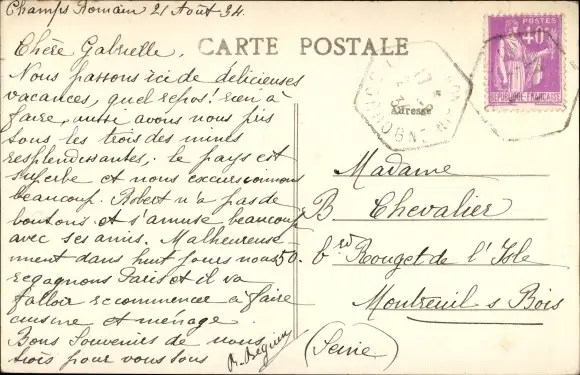 Champs Romain 21 Août 34.
CARTE POSTALE
Chère Gabrielle,
Nous passons ici de délicieuses
vacances, quel repos! rien à
faire, aussi avons nous pris
tous les trois des mines
resplendissantes. le pays est
superbe et nous excursionnons
beaucoup. Robert n'a pas de
boutons et s'amuse beaucoup
avec ses amis. Malheureuse-
ment dans huit jours nous
regagnons Paris et il va
falloir recommencer à faire
cuisine et ménage.
Bons Souvenirs de nous
trois pour vous tous
POSTES
40
REPUBLIQUE FRANÇAISE
DORDOGNE
Adresse
Madame
B Chevalier
50. bvd Rouget de l'Isle
Montreuil s Bois
(Seine)